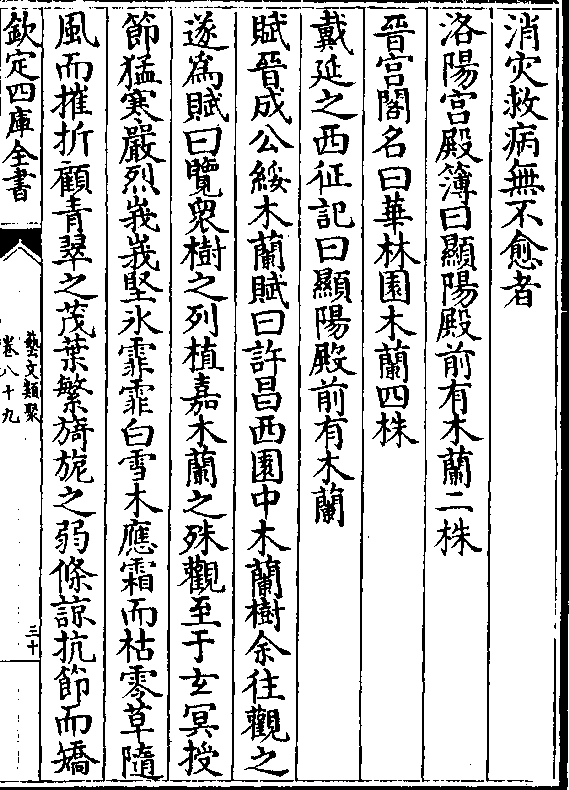 消灾救病無不愈者
洛陽宫殿簿曰顯陽殿前有木蘭二株
晉宫閣名曰華林園木蘭四株
戴延之西征記曰顯陽殿前有木蘭
賦晉成公綏木蘭賦曰許昌西園中木蘭樹余往觀之
遂為賦曰覽衆樹之列植嘉木蘭之殊觀至于玄冥授
節猛寒嚴烈峩峩堅氷霏霏白雪木應霜而枯零草隨
風而摧折顧青翠之茂葉繁旖旎之弱條諒抗節而矯
欽定四庫全書
藝文類聚
卷八十九
三十